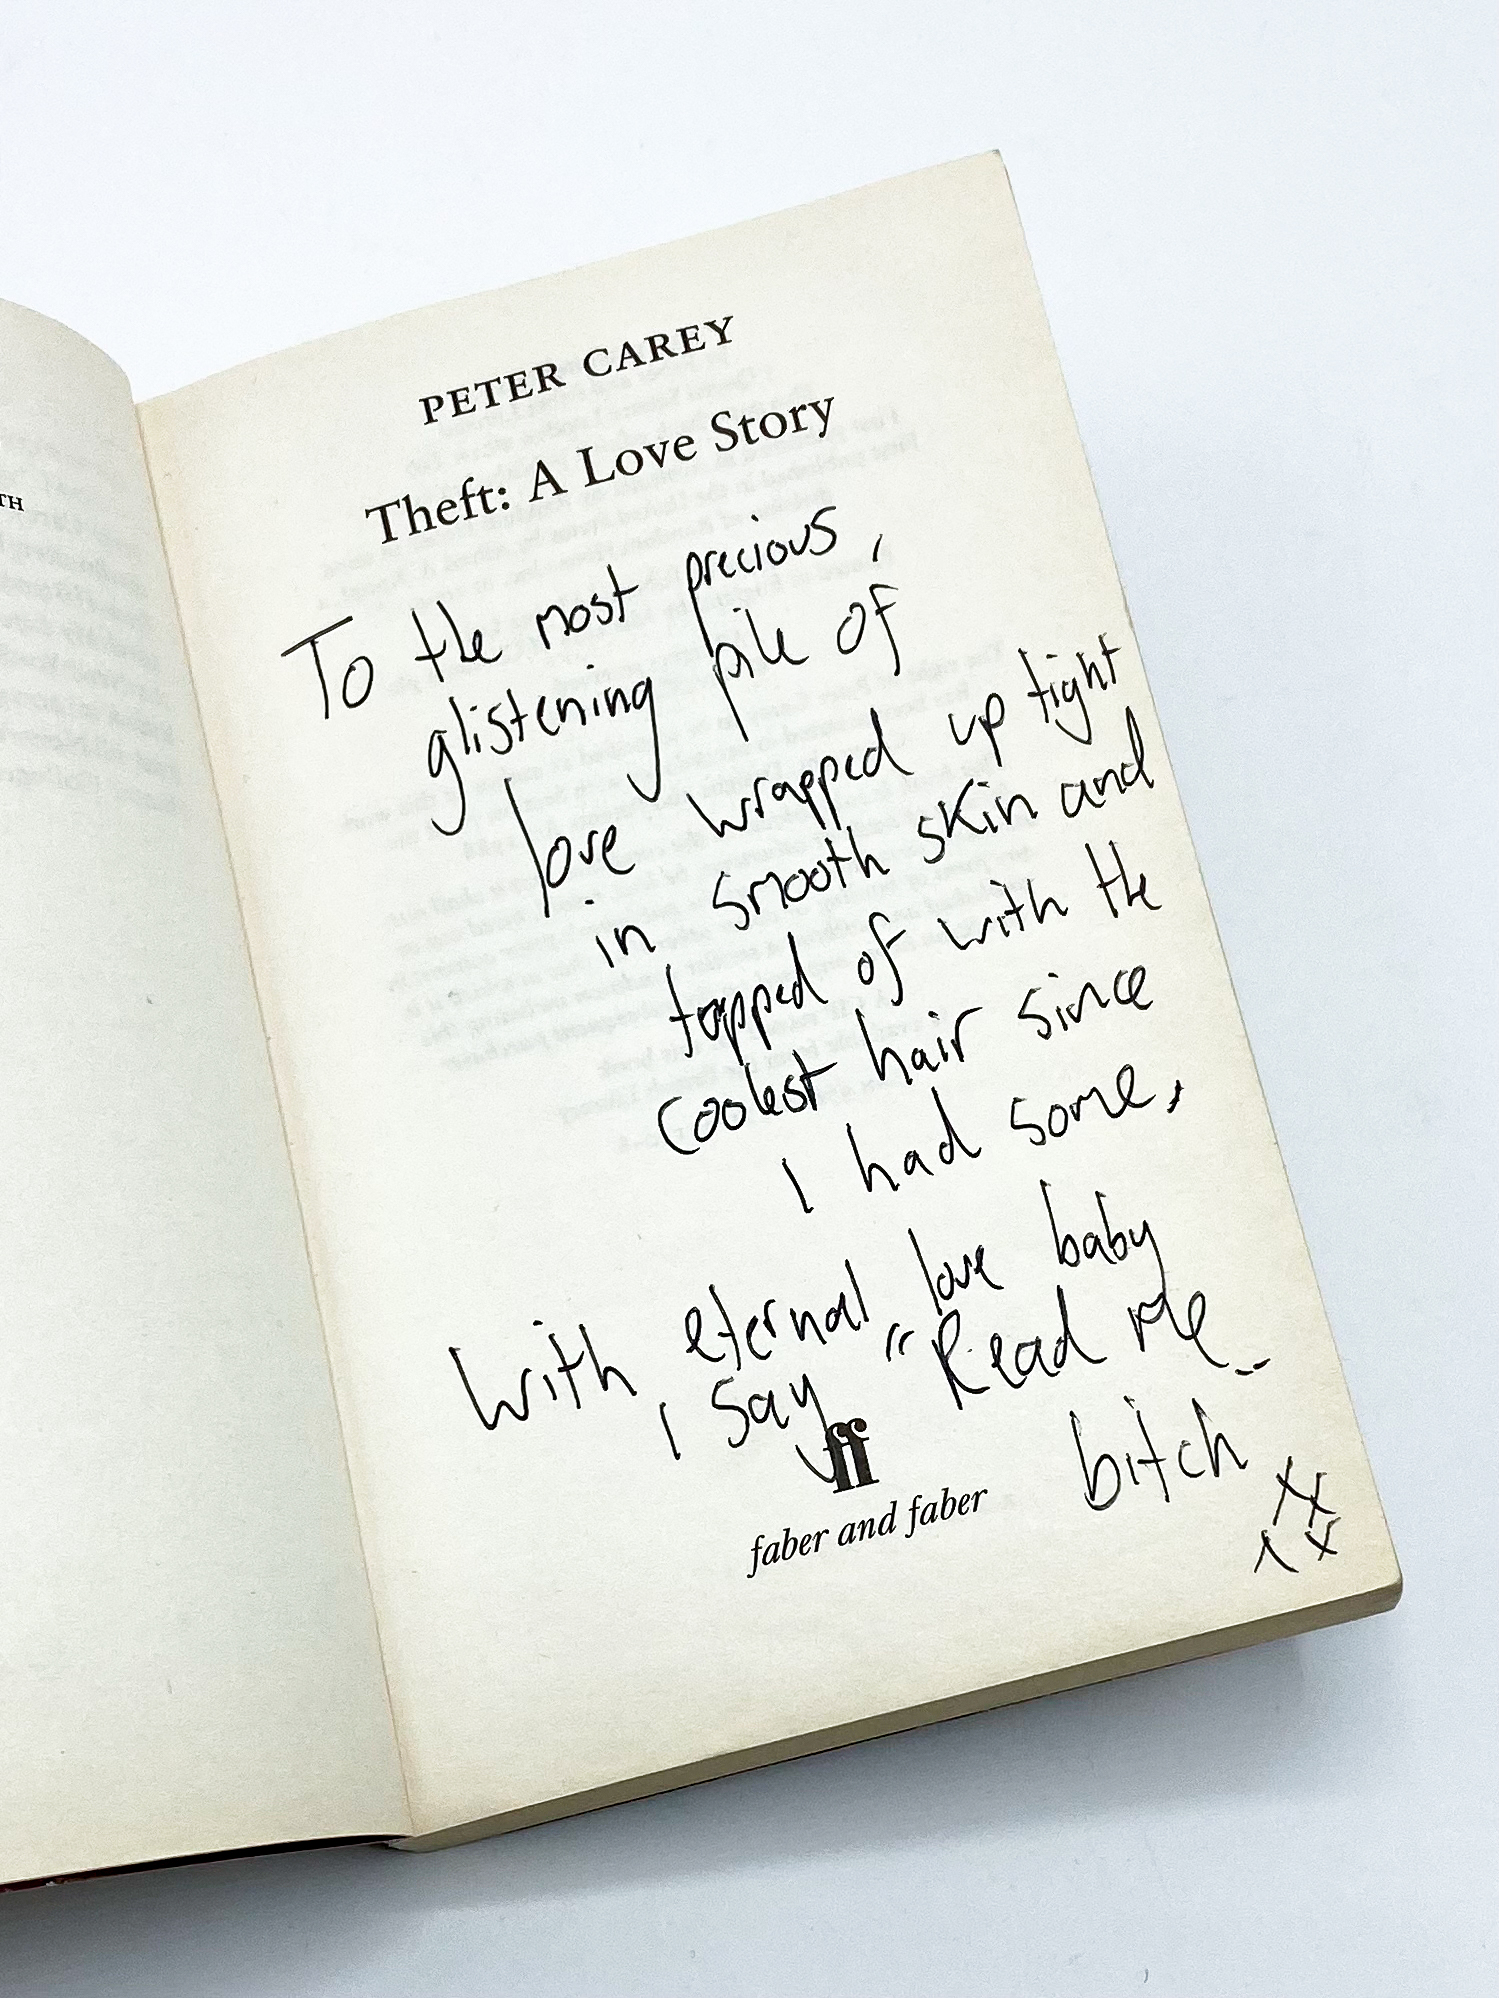 TH
PETER CAREY
Theft: A Love Story
To the most precious,
glistening pile of
love wrapped up tight
in smooth skin and
topped of with the
coolest hair since
I had some,
With eternal love baby
I say "Read me
bitch
xx
xx
ff
faber and faber